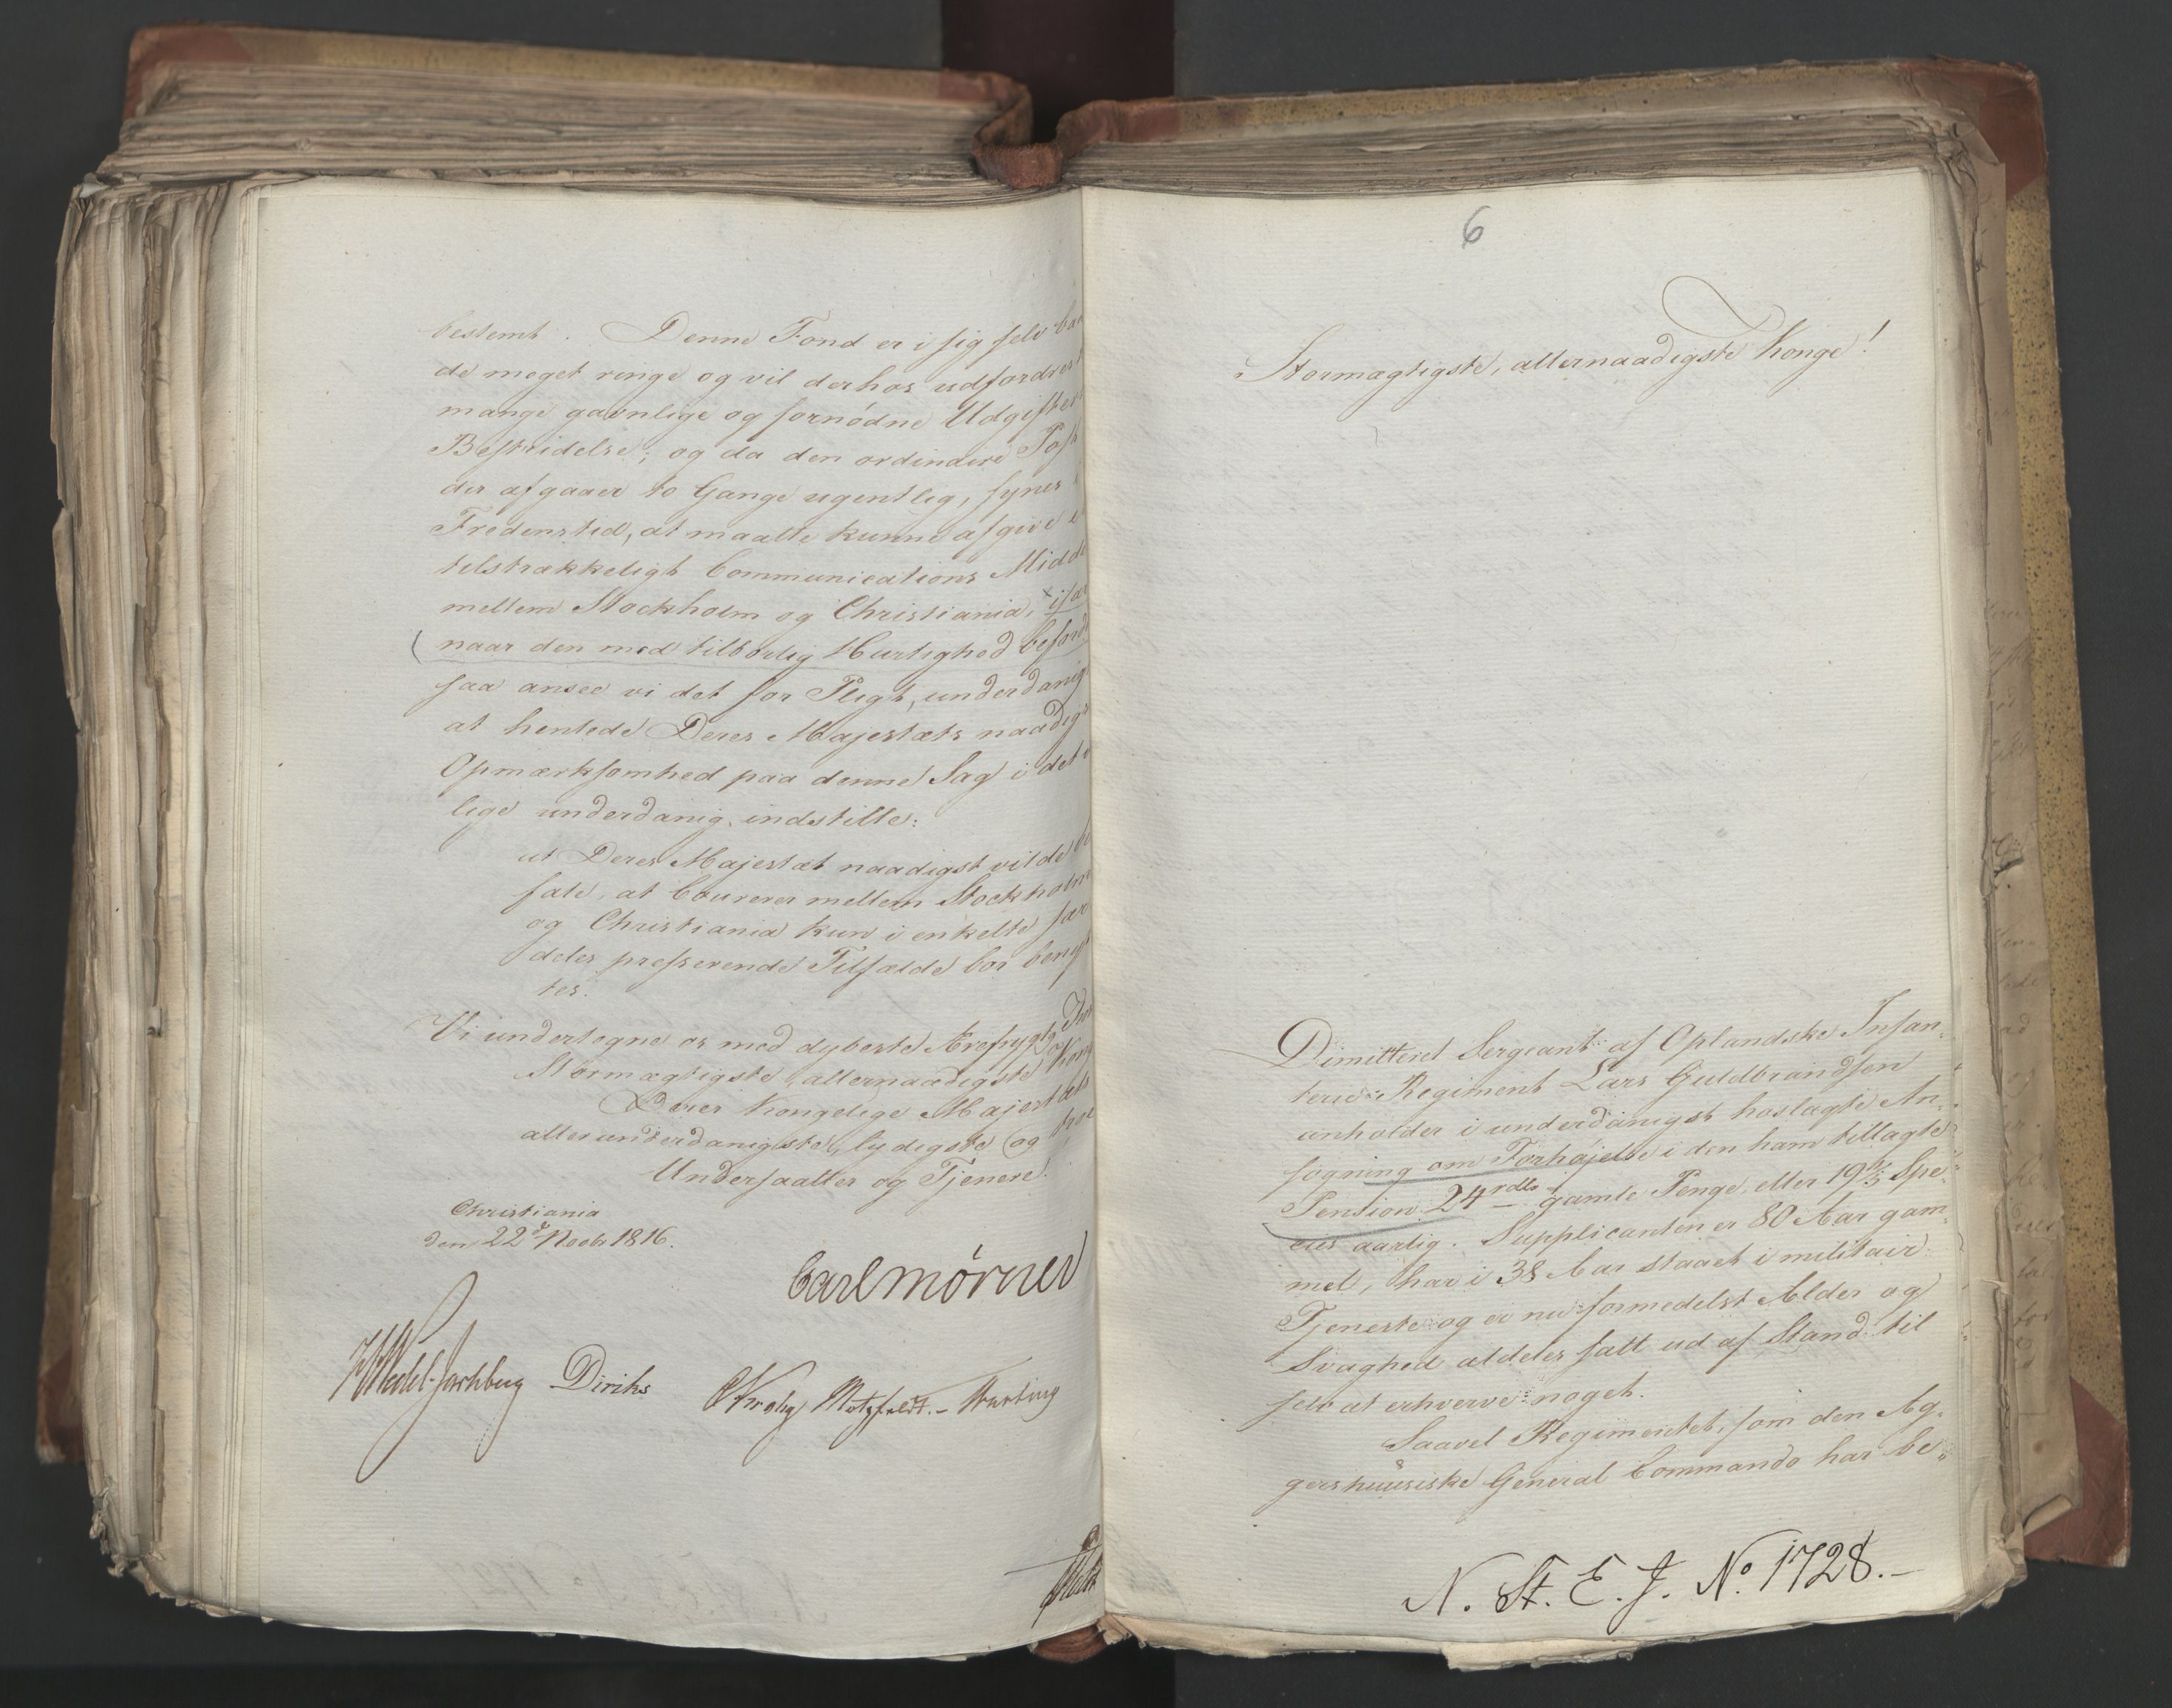 bestemt. Denne Fond er i sig selv baa
de meget ringe og vil derhos udfordres
mange gavnlige og fornødne Udgifters
Bestridelse; og da den ordinaire Post
der afgaaer to Gange ugentlig, synes i
Fredenstid, at maatte kunne afgive et
tilstrækkeligt Communications Midde
mellem Stockholm og Christiania, × især
( naar den med tilbørlig Hurtighed befordr
saa ansee vi det for Pligt, underdanig
at henlede Deres Majestæts naadigs
Opmærksomhed paa denne Sag i det vi
lige underdanig indstille:
at Deres Majestæt naadigst vilde be
fale, at Courerer mellem Stockholm
og Christiania kun i enkelte sær
deles presserende Tilfælde bør benyt
tes.
Vi undertegne os med dybeste Ærefrygt
Stormægtigste, allernaadigste Kong
Deres Kongelige Majestæts
allerunderdanigste, lydigste og troe
Undersaatter og Tjenere.
Christiania
den 22de Novbr 1816.
Carl Mörner
HWedel-Jarlsberg Diriks CKrohg Motzfeldt.- Hartung
6
Stormægtigste, allernaadigste Konge!
Dimitteret Sergeant af Oplandske Infan-
terie-Regiment Lars Guldbrandsen
anholder i underdanigst hoslagte An-
søgning om Forhøjelse i den ham tillagte
Pension 24 rdlr gamle Penge, eller 19 1/5 Spe-
cies aarlig. Supplicanten er 80 Aar gam-
mel, har i 38 Aar staaet i militair
Tjeneste og er nu formedelst Alder og
Svaghed aldeles satt ud af Stand til
selv at erhverve noget.
Saavel Regimentet, som den Ag-
gershuusiske General Commando har be-
N. St. E. J. No. 1728.-